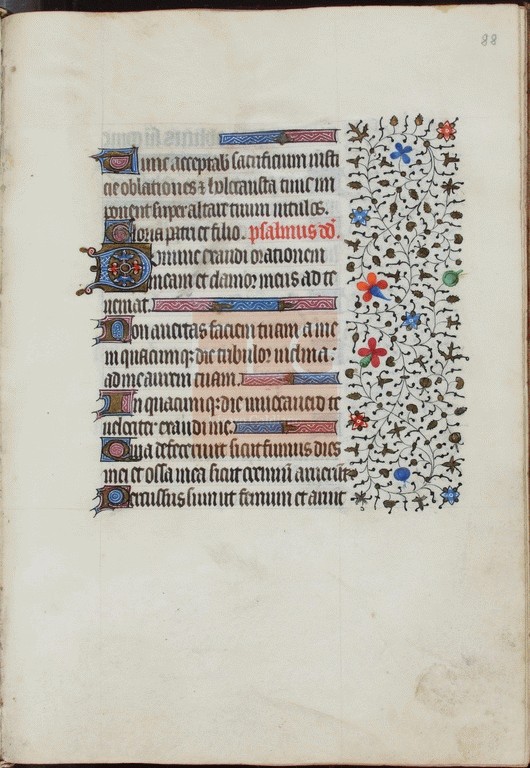 88
Tunc acceptab sacrificium iusti
cie oblationes ⁊ holocausta tunc im
ponent super altare tuum uitulos.
Gloria patri et filio. psalmus dd.
Domine exaudi orationem
meam et clamor meus ad te
ueniat.
Non auertas faciem tuam a me
in quacumqꝫ die tribulor inclina:
ad me aurem tuam.
In quacumqꝫ die inuocauero te
uelociter exaudi me.
Quia defecerunt sicut fumus dies
mei et ossa mea sicut cremiū aruerūt
Percussus sum ut fenum et aruit